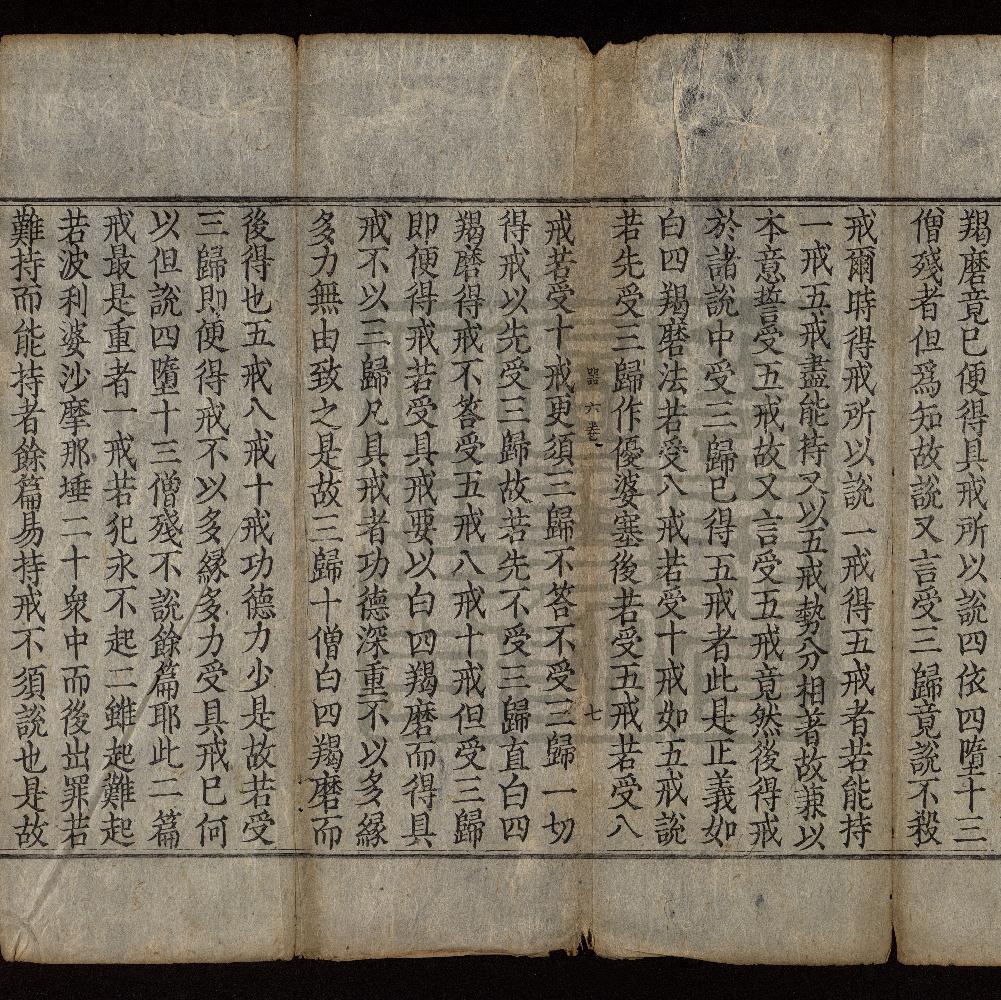 羯磨竟已便得具戒所以說四依四墮十三
僧殘者但為知故說又言受三歸竟說不殺
戒爾時得戒所以說一戒得五戒者若能持
一戒五戒盡能持又以五戒勢分相著故兼以
本意誓受五戒故又言受五戒竟然後得戒
於諸說中受三歸已得五戒者此是正義如
白四羯磨法若受八戒若受十戒如五戒說
若先受三歸作優婆塞後若受五戒若受八
噐 六卷 七
戒若受十戒更須三歸不答不受三歸一切
得戒以先受三歸故若先不受三歸直白四
羯磨得戒不答受五戒八戒十戒但受三歸
即便得戒若受具戒要以白四羯磨而得具
戒不以三歸凡具戒者功德深重不以多緣
多力無由致之是故三歸十僧白四羯磨而
後得也五戒八戒十戒功德力少是故若受
三歸即便得戒不以多緣多力受具戒已何
以但說四墮十三僧殘不說餘篇耶此二篇
戒最是重者一戒若犯永不起二雖起難起
若波利婆沙摩那埵二十眾中而後出罪若
難持而能持者餘篇易持戒不須說也是故